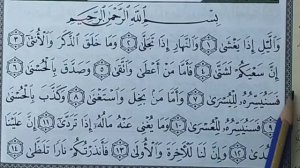 بِسْمِ اللَّهِ الرَّحْمَٰنِ الرَّحِيمِ
وَاللَّيْلِ إِذَا يَغْشَىٰ ١ وَالنَّهَارِ إِذَا تَجَلَّىٰ ٢ وَمَا خَلَقَ الذَّكَرَ وَالْأُنثَىٰ ٣
إِنَّ سَعْيَكُمْ لَشَتَّىٰ ٤ فَأَمَّا مَنْ أَعْطَىٰ وَاتَّقَىٰ ٥ وَصَدَّقَ بِالْحُسْنَىٰ ٦
فَسَنُيَسِّرُهُ لِلْيُسْرَىٰ ٧ وَأَمَّا مَن بَخِلَ وَاسْتَغْنَىٰ ٨ وَكَذَّبَ بِالْحُسْنَىٰ
٩ فَسَنُيَسِّرُهُ لِلْعُسْرَىٰ ١٠ وَمَا يُغْنِي عَنْهُ مَالُهُ إِذَا تَرَدَّىٰ ١١ إِنَّ عَلَيْنَا
لَلْهُدَىٰ ١٢ وَإِنَّ لَنَا لَلْآخِرَةَ وَالْأُولَىٰ ١٣ فَأَنذَرْتُكُمْ نَارًا تَلَظَّىٰ ١٤